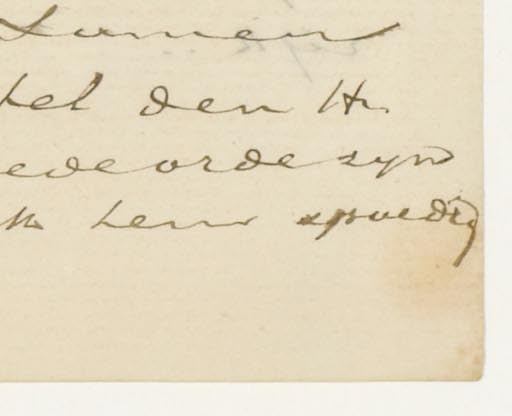 Lumen
tel den Hr.
ede orde zyn
ik hem spoedig